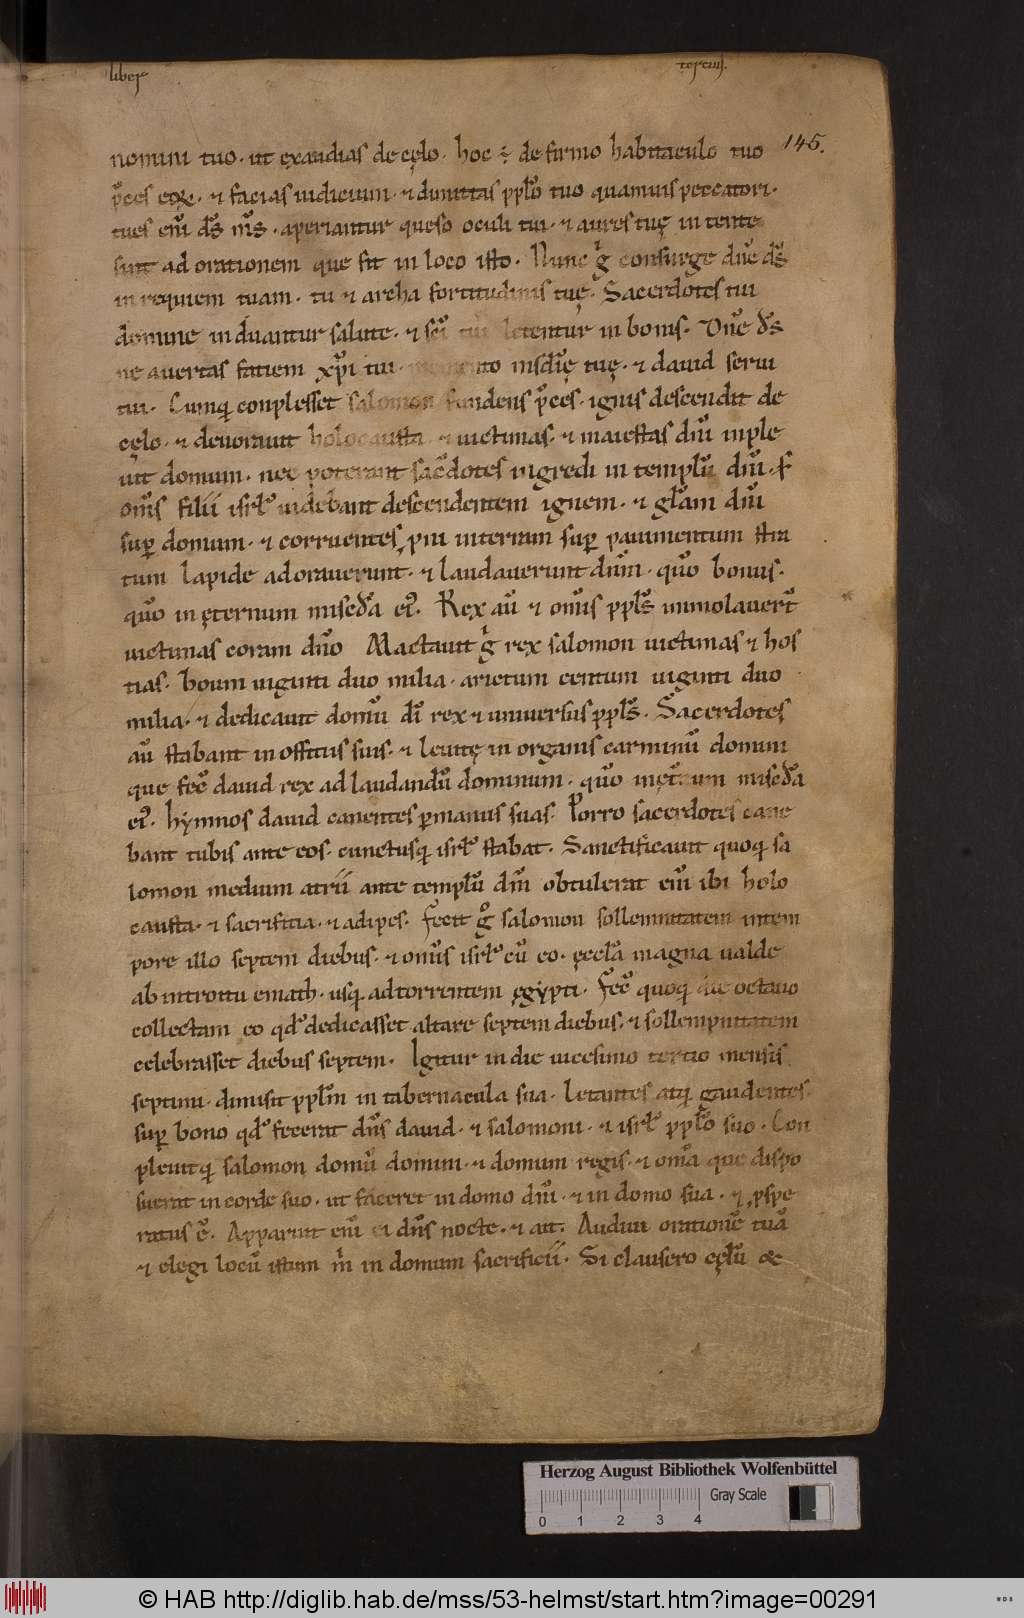 liber
tertius.
145.
nomini tuo. ut exaudias de cęlo. hoc ÷ de firmo habitaculo tuo
p̄ces eoꝝ. ⁊ facias iudicium. ⁊ dimittas pp̄lo tuo quamuis peccatori.
tues em̄ ds̄ ms̄. aperiantur queso oculi tui. ⁊ aures tuę intente
sint ad orationem que fit in loco isto. Nunc gͥ consurge dn̄e ds̄
in requiem tuam. tu ⁊ archa fortitudinis tuę. Sacerdotes tui
domine induantur salute. ⁊ sc̄i tui letentur in bonis. Dn̄e ds̄
ne avertas fatiem xp̄i tui. memento misdīę tuę. ⁊ david servi
tui. Cumqꝫ conplesset salomon fundens p̄ces. ignis descendit de
cęlo. ⁊ devoravit holocausta ⁊ victimas. ⁊ maiestas dn̄i inple
vit domum. nec poterant sac̄dotes ingredi in templū dn̄i. S
om̄s filii isrl̄ videbant descendentem ignem. ⁊ glām dn̄i
suꝑ domum. ⁊ corruentes pni interram suꝑ pavimentum stra
tum lapide adoraverunt. ⁊ laudaverunt dn̄m. qūo bonus.
qūo in ęternum misedīa ei. Rex aū ⁊ om̄is ppl̄s immolavert̄
victimas coram dn̄o Mactavit gͥ rex salomon victimas ⁊ hos
tias. boum viginti duo milia. arietum centum viginti duo
milia. ⁊ dedicavit domū dī rex ⁊ universus ppl̄s. Sacerdotes
aū stabant in offitiis suis. ⁊ levitę in organis carminū domini
que fec̄ david rex ad laudandū dominum. qūo inęt̄num misedīa
ei. hymnos david canentes ꝑ manus suas. Porro sacerdotes cane
bant tubis ante eos. cunctusqꝫ isrl̄ stabat. Sanctificavit quoqꝫ sa
lomon medium atrii ante templū dn̄i obtulerat em̄ ibi holo
causta. ⁊ sacrifitia. ⁊ adipes. Fecit gͦ salomon sollemnitatem intem
pore illo septem diebus. ⁊ om̄is isrl̄ cū eo. ęccl̄a magna valde
ab introitu emath. usqꝫ ad torrentem ęgypti. Fec̄ quoqꝫ die octavo
collectam eo qd̄ dedicasset altare septem diebus. ⁊ sollempnitatem
celebrasset diebus septem. Igitur in die vicesimo tertio mensis
septimi. dimisit ppl̄m in tabernacula sua. letantes atqꝫ gaudentes.
suꝑ bono qd̄ fecerat dn̄s david. ⁊ salomoni. ⁊ isrl̄ ppl̄o suo. Con
plevitqꝫ salomon domū domini. ⁊ domum regis. ⁊ om̄a que dispo
suerat in corde suo. ut faceret in domo dn̄i. ⁊ in domo sua. ⁊ ꝓspe
ratus ē. Apparuit em̄ ei dn̄s nocte. ⁊ ait. Audivi orationē tuā
⁊ elegi locū istum m̄ in domum sacrificii. Si clausero cęlū &
Herzog August Bibliothek Wolfenbüttel
Gray Scale
0 1 2 3 4
© HAB http://diglib.hab.de/mss/53-helmst/start.htm?image=00291